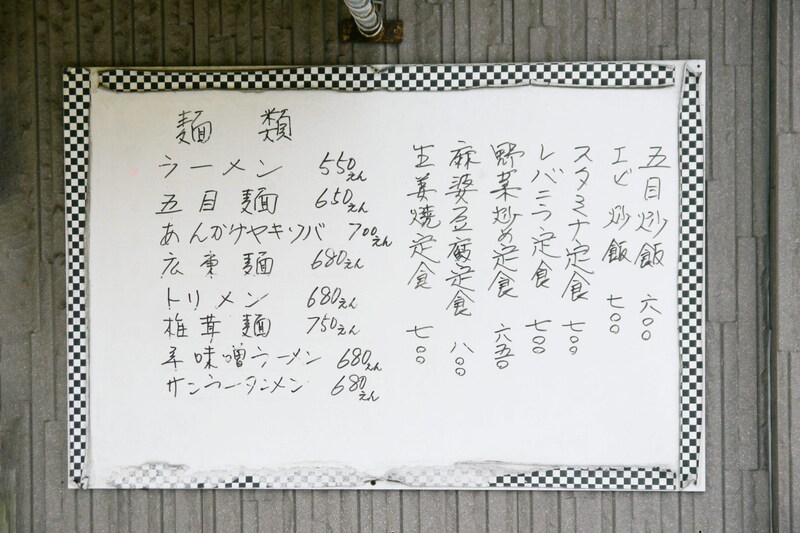 麺 類
ラーメン 550えん
五目麺 650えん
あんかけヤキソバ 700えん
広東麺 680えん
トリメン 680えん
椎茸麺 750えん
辛味噌ラーメン 680えん
サンラータンメン 680えん
五目炒飯 六〇〇
エビ炒飯 七〇〇
スタミナ定食 七〇〇
レバニラ定食 七〇〇
野菜炒め定食 六五〇
麻婆豆腐定食 八〇〇
生姜焼定食 七〇〇